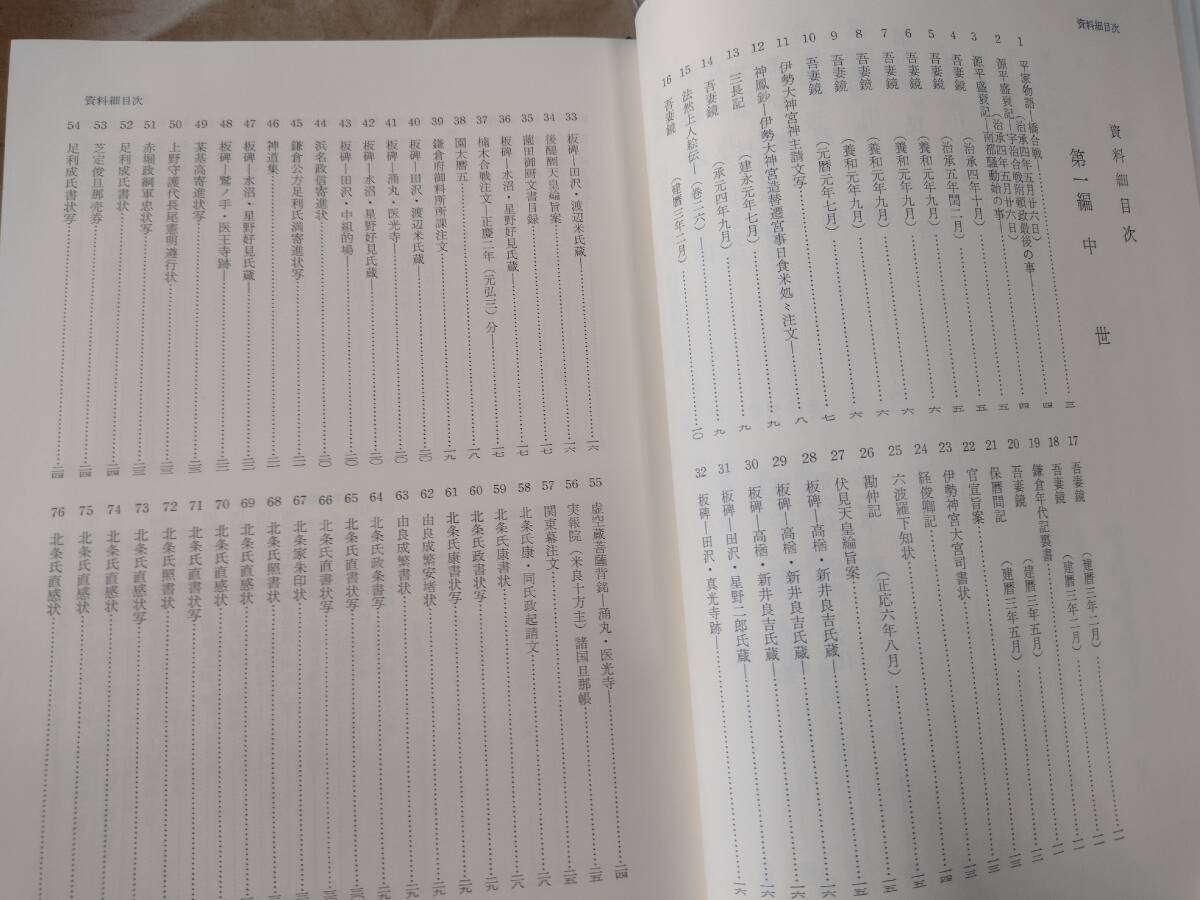 資料細目次
資料細目次
第一編 中世
1 平家物語―橋合戦―(治承四年五月廿六日)……三
2 源平盛衰記―宇治合戦附頼政最後の事―(治承四年五月廿六日)……四
3 源平盛衰記―南都騒動始の事―……四
4 吾妻鏡(治承四年十月)……五
5 吾妻鏡(治承五年閏二月)……五
6 吾妻鏡(養和元年九月)……六
7 吾妻鏡(養和元年九月)……六
8 吾妻鏡(養和元年九月)……六
9 吾妻鏡(養和元年九月)……六
10 吾妻鏡(元暦元年七月)……七
11 伊勢大神宮神主請文写……八
12 神鳳鈔―伊勢大神宮造替遷宮事日食米処〻注文―……九
13 三長記(建永元年七月)……九
14 吾妻鏡(承元四年九月)……九
15 法然上人絵伝―(巻二六)―……一〇
16 吾妻鏡(建暦三年二月)
17 吾妻鏡(建暦三年二月)……一一
18 吾妻鏡(建暦三年二月)……一一
19 鎌倉年代記裏書(建暦三年五月)……一二
20 吾妻鏡(建暦三年五月)……一二
21 保暦間記……一三
22 官宣旨案……一三
23 伊勢神宮大宮司書状……一四
24 経俊卿記……一五
25 六波羅下知状(正応六年八月)……一五
26 勘仲記……一五
27 伏見天皇綸旨案……一五
28 板碑―高楢・新井良吉氏蔵―……一六
29 板碑―高楢・新井良吉氏蔵―……一六
30 板碑―高楢・新井良吉氏蔵―……一六
31 板碑―田沢・星野二郎氏蔵―……一六
32 板碑―田沢・真光寺跡―……一六
資料細目次
33 板碑―田沢・渡辺米氏蔵―……一六
34 後醍醐天皇綸旨案……一六
35 薗田御厨文書目録……一七
36 板碑―水沼・星野好見氏蔵―……一七
37 楠木合戦注文―正慶二年(元弘三)分―……一八
38 園太暦五……一八
39 鎌倉府御料所所課注文……一九
40 板碑―田沢・渡辺米氏蔵―……二〇
41 板碑―涌丸・医光寺―……二〇
42 板碑―水沼・星野好見氏蔵―……二〇
43 板碑―田沢・中組的場―……二〇
44 浜名政信寄進状……二〇
45 鎌倉公方足利氏満寄進状写……二一
46 神道集……二一
47 板碑―水沼・星野好見氏蔵―……二二
48 板碑―鷲ノ手・医王寺跡―……二二
49 某基高寄進状写……二三
50 上野守護代長尾憲明遵行状……二三
51 赤堀政綱軍忠状写……二三
52 足利成氏書状……二四
53 芝定俊旦那売券……二四
54 足利成氏書状写……二四
55 虚空蔵菩薩背銘―涌丸・医光寺―……二四
56 実報院(米良十方主)諸国旦那帳……二五
57 関東幕注文……二五
58 北条氏康・同氏政起請文……二八
59 北条氏康書状……二八
60 北条氏政書状写……二九
61 北条氏康書状写……二九
62 由良成繁安堵状……二九
63 由良成繁書状……二九
64 北条氏政条書写
65 北条氏直書状
66 北条氏直書状写
67 北条家朱印状
68 北条氏照書状
69 北条氏直感状
70 北条氏直感状
71 北条氏直書状写
72 北条氏照書状
73 北条氏直感状写
74 北条氏直感状
75 北条氏直感状
76 北条氏直感状